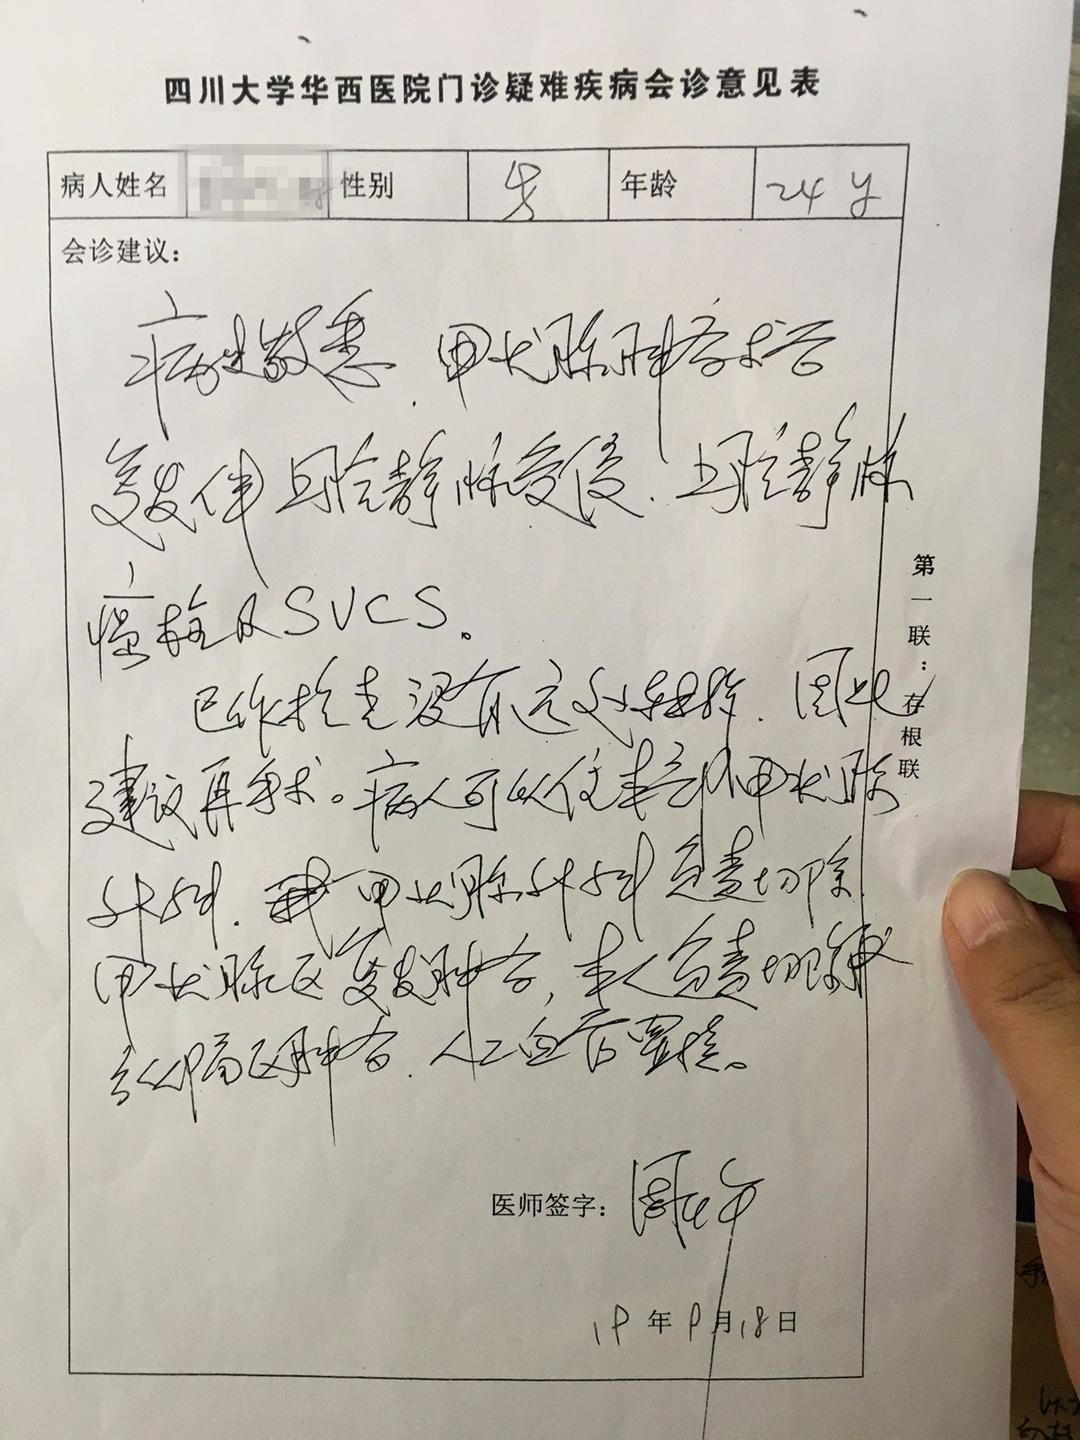 四川大学华西医院门诊疑难疾病会诊意见表
病人姓名 性别 男 年龄 24 y
会诊建议：
病史敬悉．甲状腺肿瘤术后
复发伴上腔静脉受侵．上腔静脉
癌栓及SVCS。
已作检查没有远处转移．因此
建议再手术。病人可以住本院甲状腺
外科．甲状腺外科负责切除
甲状腺区复发肿瘤，本人负责切除
纵隔区肿瘤．人工血管置换。
医师签字：
19年9月18日
第一联：存根联